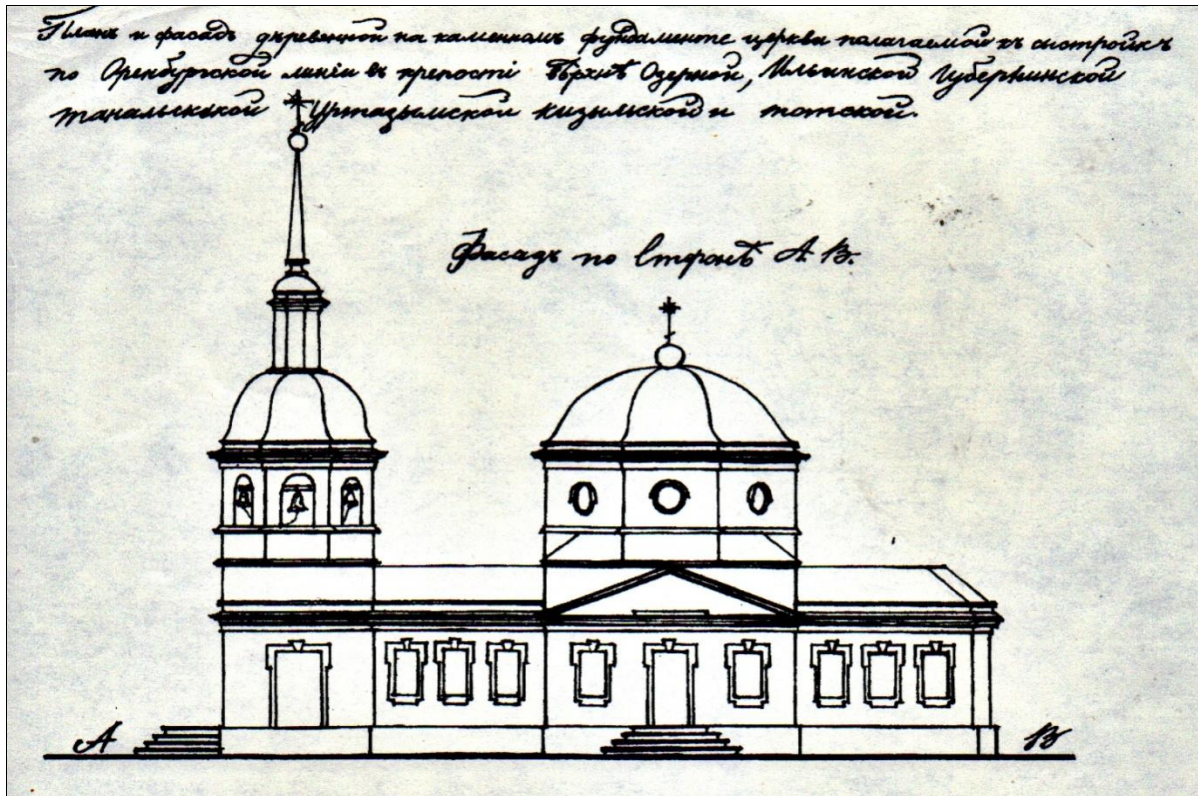 Планъ и фасадъ деревенной на каменномъ фундаменте церква полагаемой къ выстройкѣ
по Оренбургской линіи въ крепості Вѣрхнѣ Озерной, Ильинской Губерлинской
таналыкской Уртазымской кизыльской и тотской.
Фасадъ по Сторонѣ А. В.
А
В